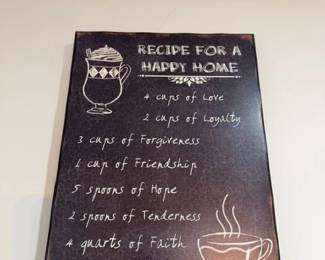 RECIPE FOR A
HAPPY HOME
4 cups of Love
2 cups of Loyalty
3 cups of Forgiveness
1 cup of Friendship
5 spoons of Hope
2 spoons of Tenderness
4 quarts of Faith